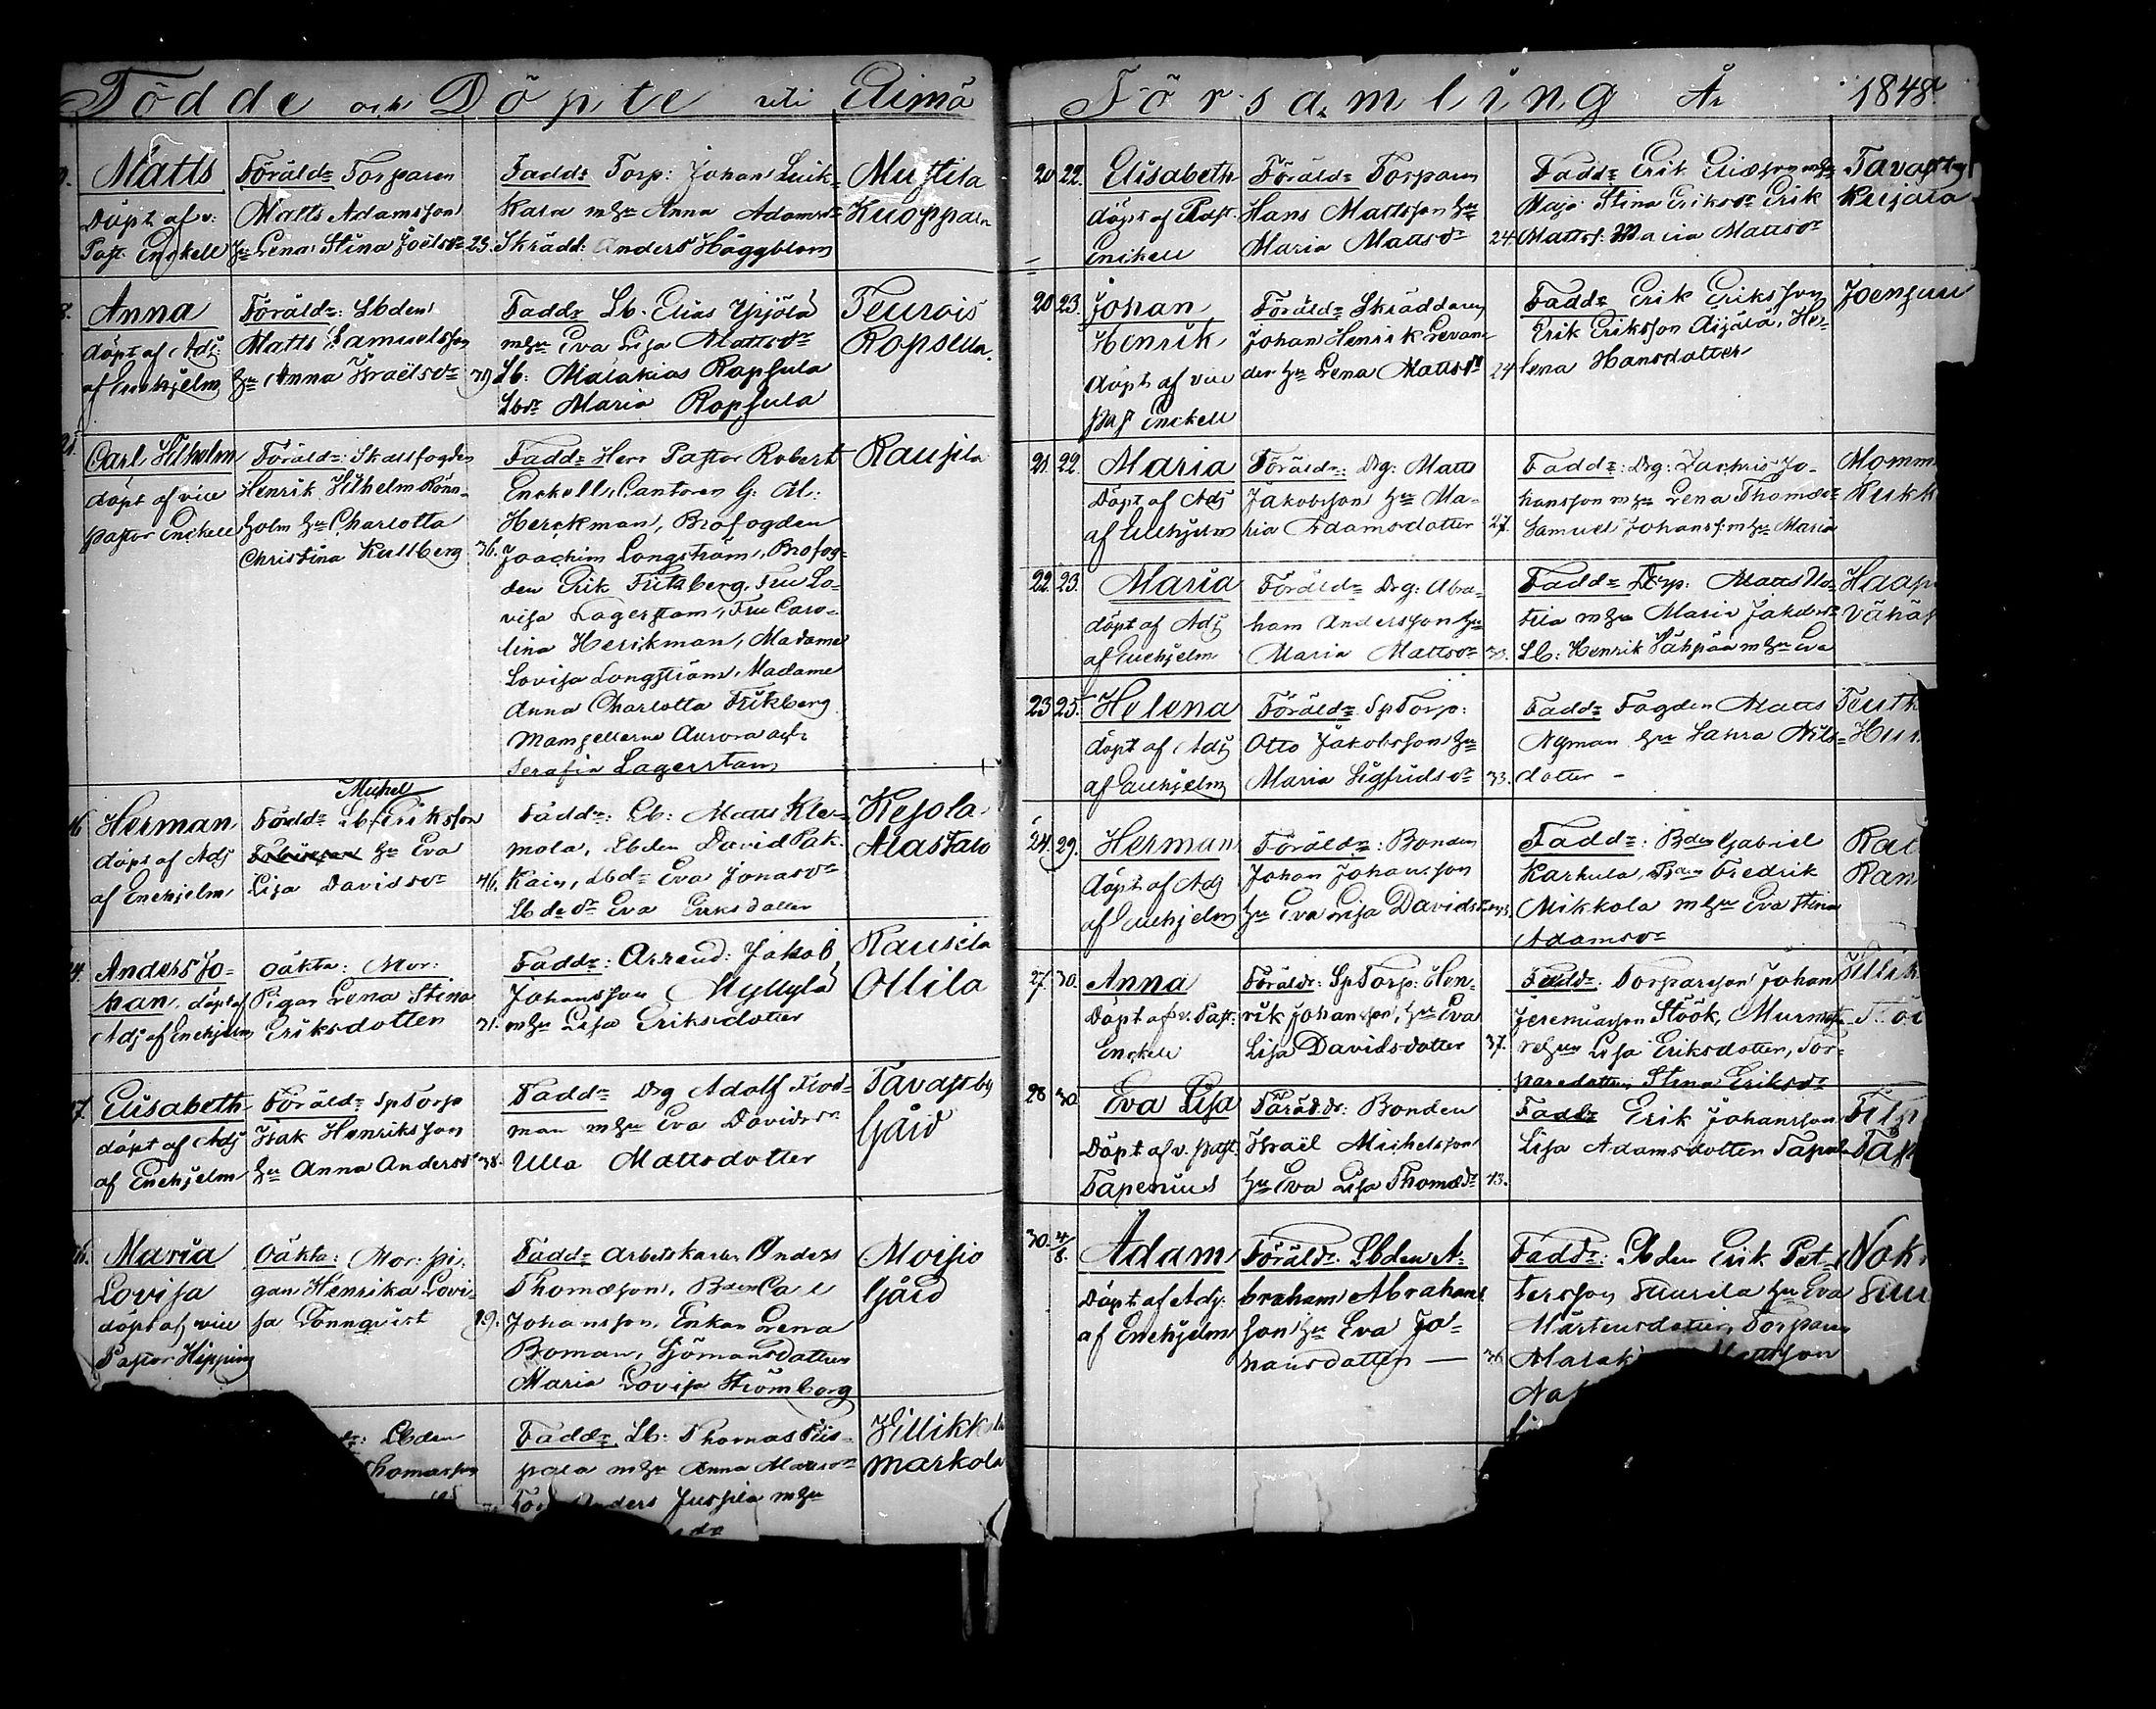 Födde och Döpte uti Elimä
Matts
Döpt af v:
Past. Enckell
Föräldr Torparen
Matts Adamsson
hu Lena Stina Joëlsdr 25.
Faddr Torp: Johan Luik-
kala m hu Anna Adamsdr
Skrädd: Anders Häggblom
Mustila
Kuoppala
Anna
döpt af Adj:
af Enehjelm
Föräldr: Lbden
Matts Samuelsson
hu Anna Israëlsdr 39
Faddr Lb. Elias Yrjölä
m hu Eva Lisa Mattsdr
Lb: Malakias Ropsula
Lbdr Maria Ropsula
Teurois
Ropsula.
Carl Wilhelm
döpt af vice
pastor Enckell
Föräldr: Skattfogden
Henrik Wilhelm Rönn-
holm hu Charlotta
Christina Kullberg 36.
Faddr Herr Pastor Robert
Enckell, Cantoren G: Al:
Herckman, Brofogden
Joachim Longström, Brofog-
den Erik Fritzberg, Fru Lo-
visa Lagerstam, Fru Caro-
lina Herckman, Madame
Lovisa Longström, Madame
Anna Charlotta Frikberg
Mamsellerne Aurora och
Serafia Lagerstam
Raussila
Herman
döpt af Adj
af Enehjelm
Michel
Föräldr Lb Eriksson
hu Eva
Lisa Davidsdr 46.
Faddr: Lb: Matts Kle-
mola, Lbden David Pak-
kain, Lbdr Eva Jonasdr
Lbdedr Eva Eriksdotter
Kesola
Alastalo
Anders Jo-
han, döpt af
Adj af Enehjelm
Oäkta: Mor:
Pigan Lena Stina
Eriksdotter 31.
Faddr: Arrend: Jakob
Johansson Myllylä
m hu Lisa Eriksdotter
Raussila
Ollila
Elisabeth
döpt af Adj
af Enehjelm
Föräldr SpTorp
Isak Henriksson
hu Anna Andersdr 38.
Faddr Drg Adolf Flod-
man m hu Eva Davidsdr
Ulla Mattsdotter
Tavastby
Gård
Maria
Lovisa
döpt af vice
Pastor Hipping
Oäkta: Mor: pi-
gan Henrika Lovi-
sa Lönnqvist 19.
Faddr Arbetskarlen Anders
Thomæson, Bden Carl
Johansson, Enkan Lena
Boman, Sjömansdottren
Maria Lovisa Strömberg
Moisio
Gård
Lbden
Thomasson
Faddr Lb: Thomas Piis-
pala m hu Anna Mattsdr
Anders Jussila m hu
Villikkala
Markola
Församling År 1848.
20 22. Elisabeth
döpt af Past.
Enckell
Föräldr Torparen
Hans Mattsson hu
Maria Mattsdr 24
Faddr Erik Ericsson m hu
Maja Stina Eriksdr Erik
Mattss: Maria Mattsdr
Tavastby
20 23. Johan
Henrik
döpt af vice
past Enckell
Föräldr Skräddaren
Johan Henrik Levan-
der hu Lena Mattsdr 24
Faddr Erik Eriksson
Erik Eriksson Äijälä, He-
lena Hansdotter
Joensuu
21. 22. Maria
Döpt af Adj
af Enehjelm
Föräldr: Drg: Matts
Jakobsson hu Ma-
ria Adamsdotter 27.
Faddr: Drg: Zachris Jo-
hansson m hu Lena Thomædr
Samuel Johanss: m hu Maria
Momm
Kukk
22. 23. Maria
döpt af Adj
af Enehjelm
Föräldr Drg: Abra-
ham Andersson hu
Maria Mattsdr
Faddr Torp: Matts
m hu Maria Jakobsdr
Lb: Henrik Vähpää m hu Eva
Haap
Vähä
23 25. Helena
döpt af Adj
af Enehjelm
Föräldr SpTorp:
Otto Jakobsson hu
Maria Sigfridsdr 33.
Faddr Fogden Matts
Nyman hu Sahra Nils-
dotter -
24. 29. Herman
döpt af Adj
af Enehjelm
Föräldr: Bonden
Johan Johansson
hu Eva Lisa Davidsdr
Faddr: Bden Gabriel
Karhula, Bden Fredrik
Mikkola m hu Eva Stina
Adamsdr
27. 30. Anna
Döpt af v. Past:
Enckell
Föräldr: SpTorp: Hen-
rik Johansson, hu Eva
Lisa Davidsdotter 37.
Faddr: Torparson Johan
Jeremiasson Stöök,
Lisa Eriksdotter, Tor-
paredottren Stina Eriksdr
28 30 Eva Lisa
Döpt af v. past.
Tapenius
Föräldr: Bonden
Israël Michelsson
hu Eva Lisa Thomædr 43.
Faddr Erik Johansson
Lisa Adamsdotter
30. 4/8. Adam
Döpt af Adj.
af Enehjelm
Föräldr. Lbden A-
braham Abrahams-
son hu Eva Jo-
hansdotter — 36
Faddr: Lbden Erik Pet-
tersson Suurila hu Eva
Mårtensdotter, Torparen